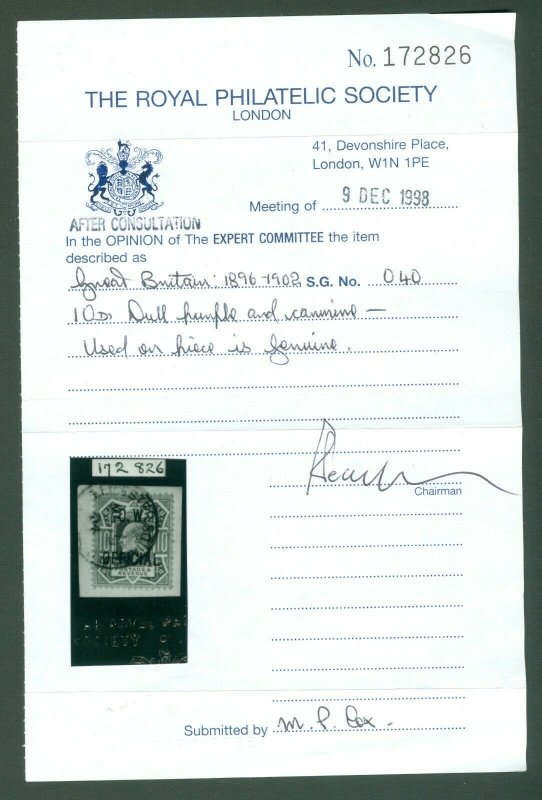 No. 172826
THE ROYAL PHILATELIC SOCIETY
LONDON
41, Devonshire Place,
London, W1N 1PE
Meeting of 9 DEC 1998
AFTER CONSULTATION
In the OPINION of The EXPERT COMMITTEE the item
described as
Great Britain: 1896-1902 S.G. No. 040
10d. Dull purple and carmine —
Used on piece is genuine.
Chairman
172 826
O.W.
OFFICIAL
POSTAGE &
REVENUE
ROYAL
SOCIETY
Submitted by M. P. Cox.